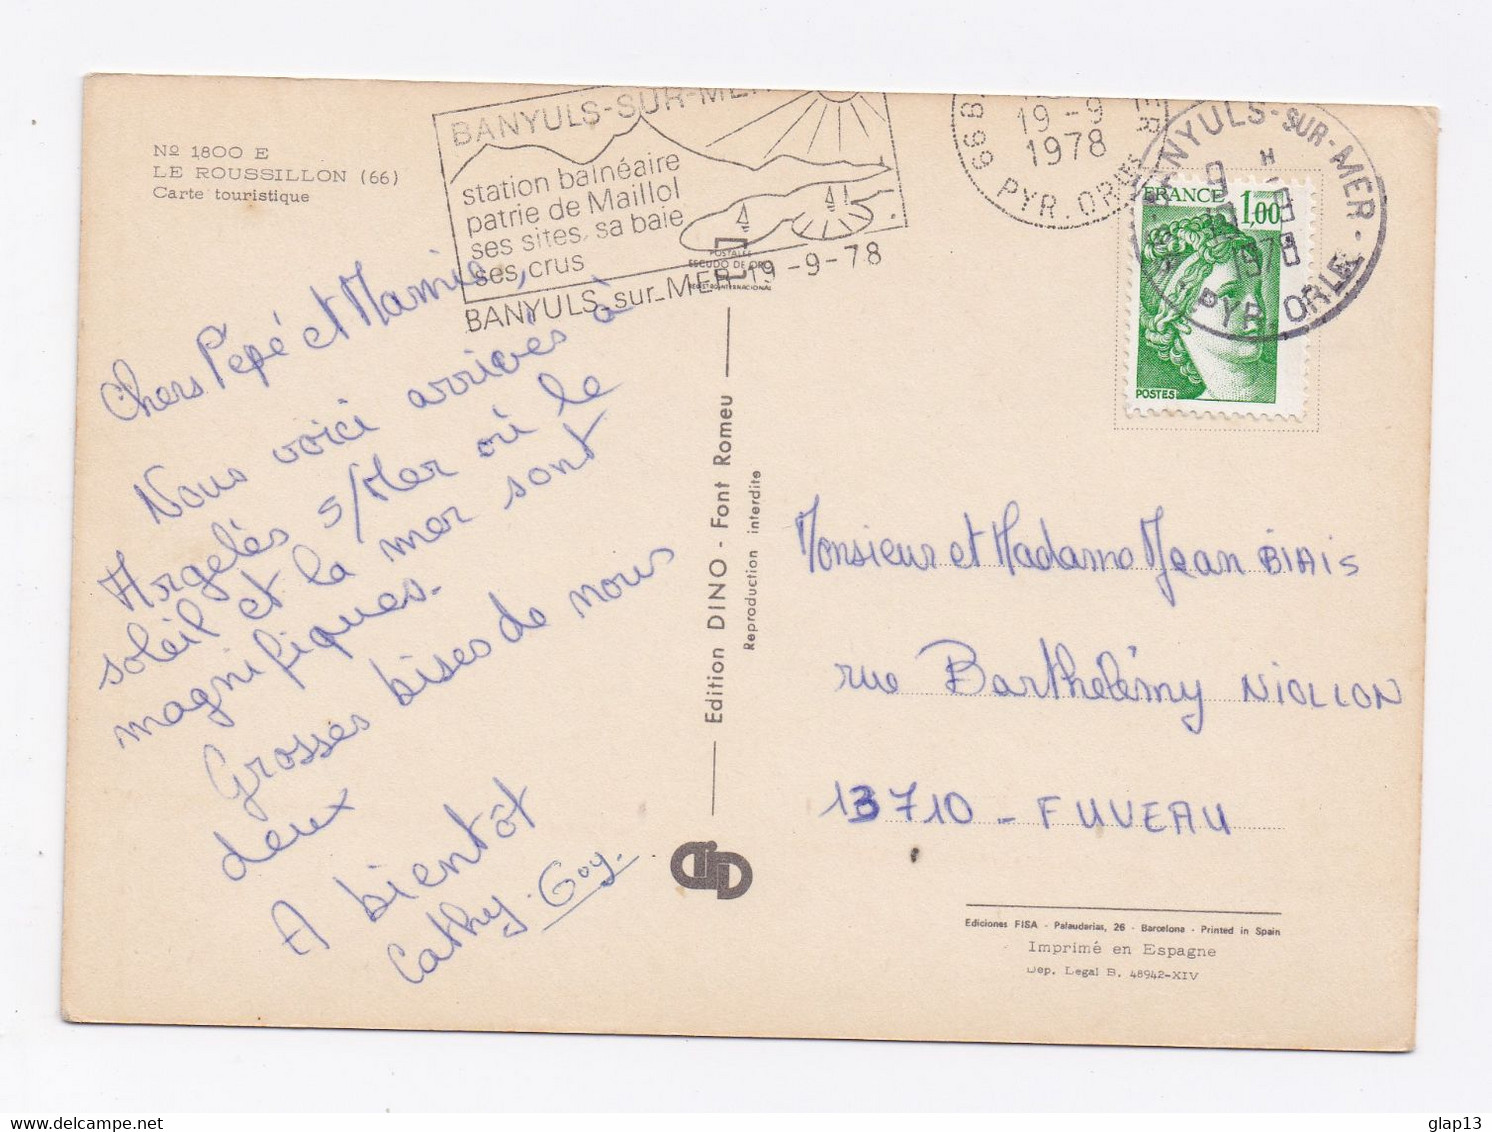 Nº 1800 E
LE ROUSSILLON (66)
Carte touristique
BANYULS-SUR-MER
station balnéaire
patrie de Maillol
ses sites, sa baie
ses crus
BANYULS sur_MER 19-9-78
19-9
1978
66 PYR. ORLES
BANYULS-SUR-MER
1978
PYR. ORLES
FRANCE 1,00
POSTES
POSTALES
ESCUDO DE ORO
REGISTRO INTERNACIONAL
Chers Pépé et Mamie,
Nous voici arrivés à
Argelès s/Mer où le
soleil et la mer sont
magnifiques.
Grosses bises de nous
deux
A bientôt
Cathy. Guy.
Edition DINO - Font Romeu
Reproduction interdite
Monsieur et Madame Jean BIAIS
rue Barthélémy NIOLLON
13710 - FUVEAU
Ediciones FISA - Palaudarias, 26 - Barcelona - Printed in Spain
Imprimé en Espagne
Dep. Legal B. 48942-XIV
glap13